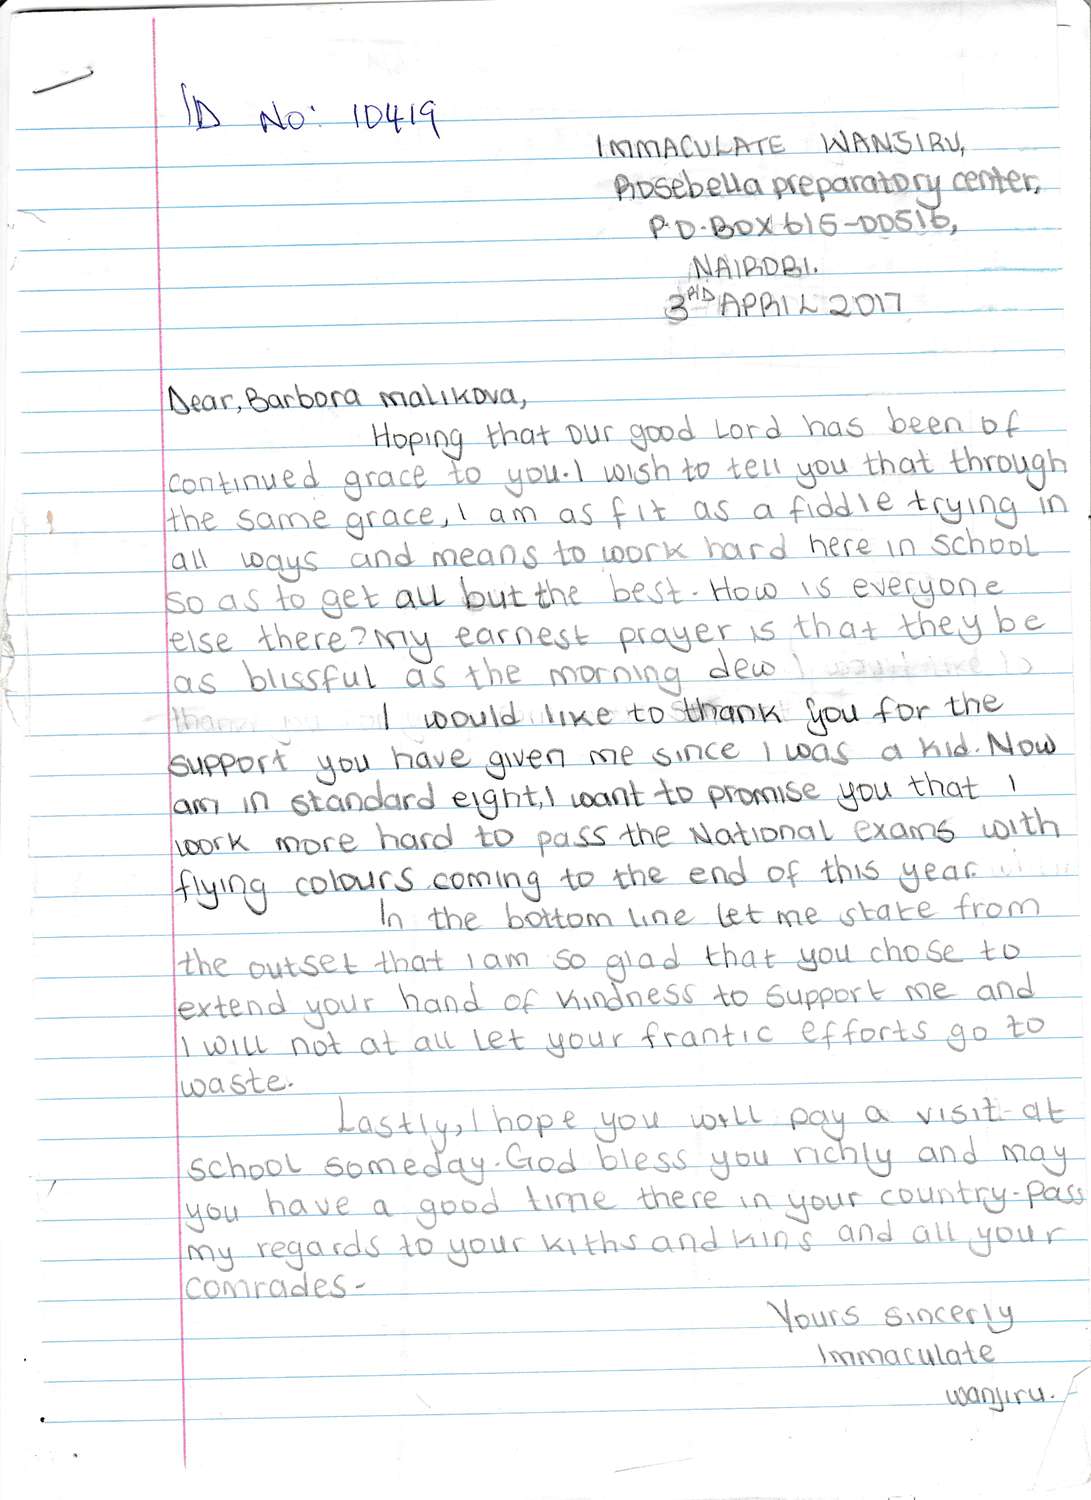 ID No: 10419
IMMACULATE WANJIRU,
Rosebella preparatory center,
P.O.BOX 615-00516,
NAIROBI.
3RD APRIL 2017
Dear, Barbora malikova,
Hoping that our good Lord has been of
continued grace to you. I wish to tell you that through
the same grace, I am as fit as a fiddle trying in
all ways and means to work hard here in school
so as to get all but the best. How is everyone
else there? My earnest prayer is that they be
as blissful as the morning dew
I would like to thank you for the
support you have given me since I was a kid. Now
am in standard eight, I want to promise you that I
work more hard to pass the National exams with
flying colours coming to the end of this year.
In the bottom line let me state from
the outset that I am so glad that you chose to
extend your hand of kindness to support me and
I will not at all let your frantic efforts go to
waste.
Lastly, I hope you will pay a visit at
school someday. God bless you richly and may
you have a good time there in your country. Pass
my regards to your kiths and kins and all your
comrades-
Yours sincerly
Immaculate
wanjiru.